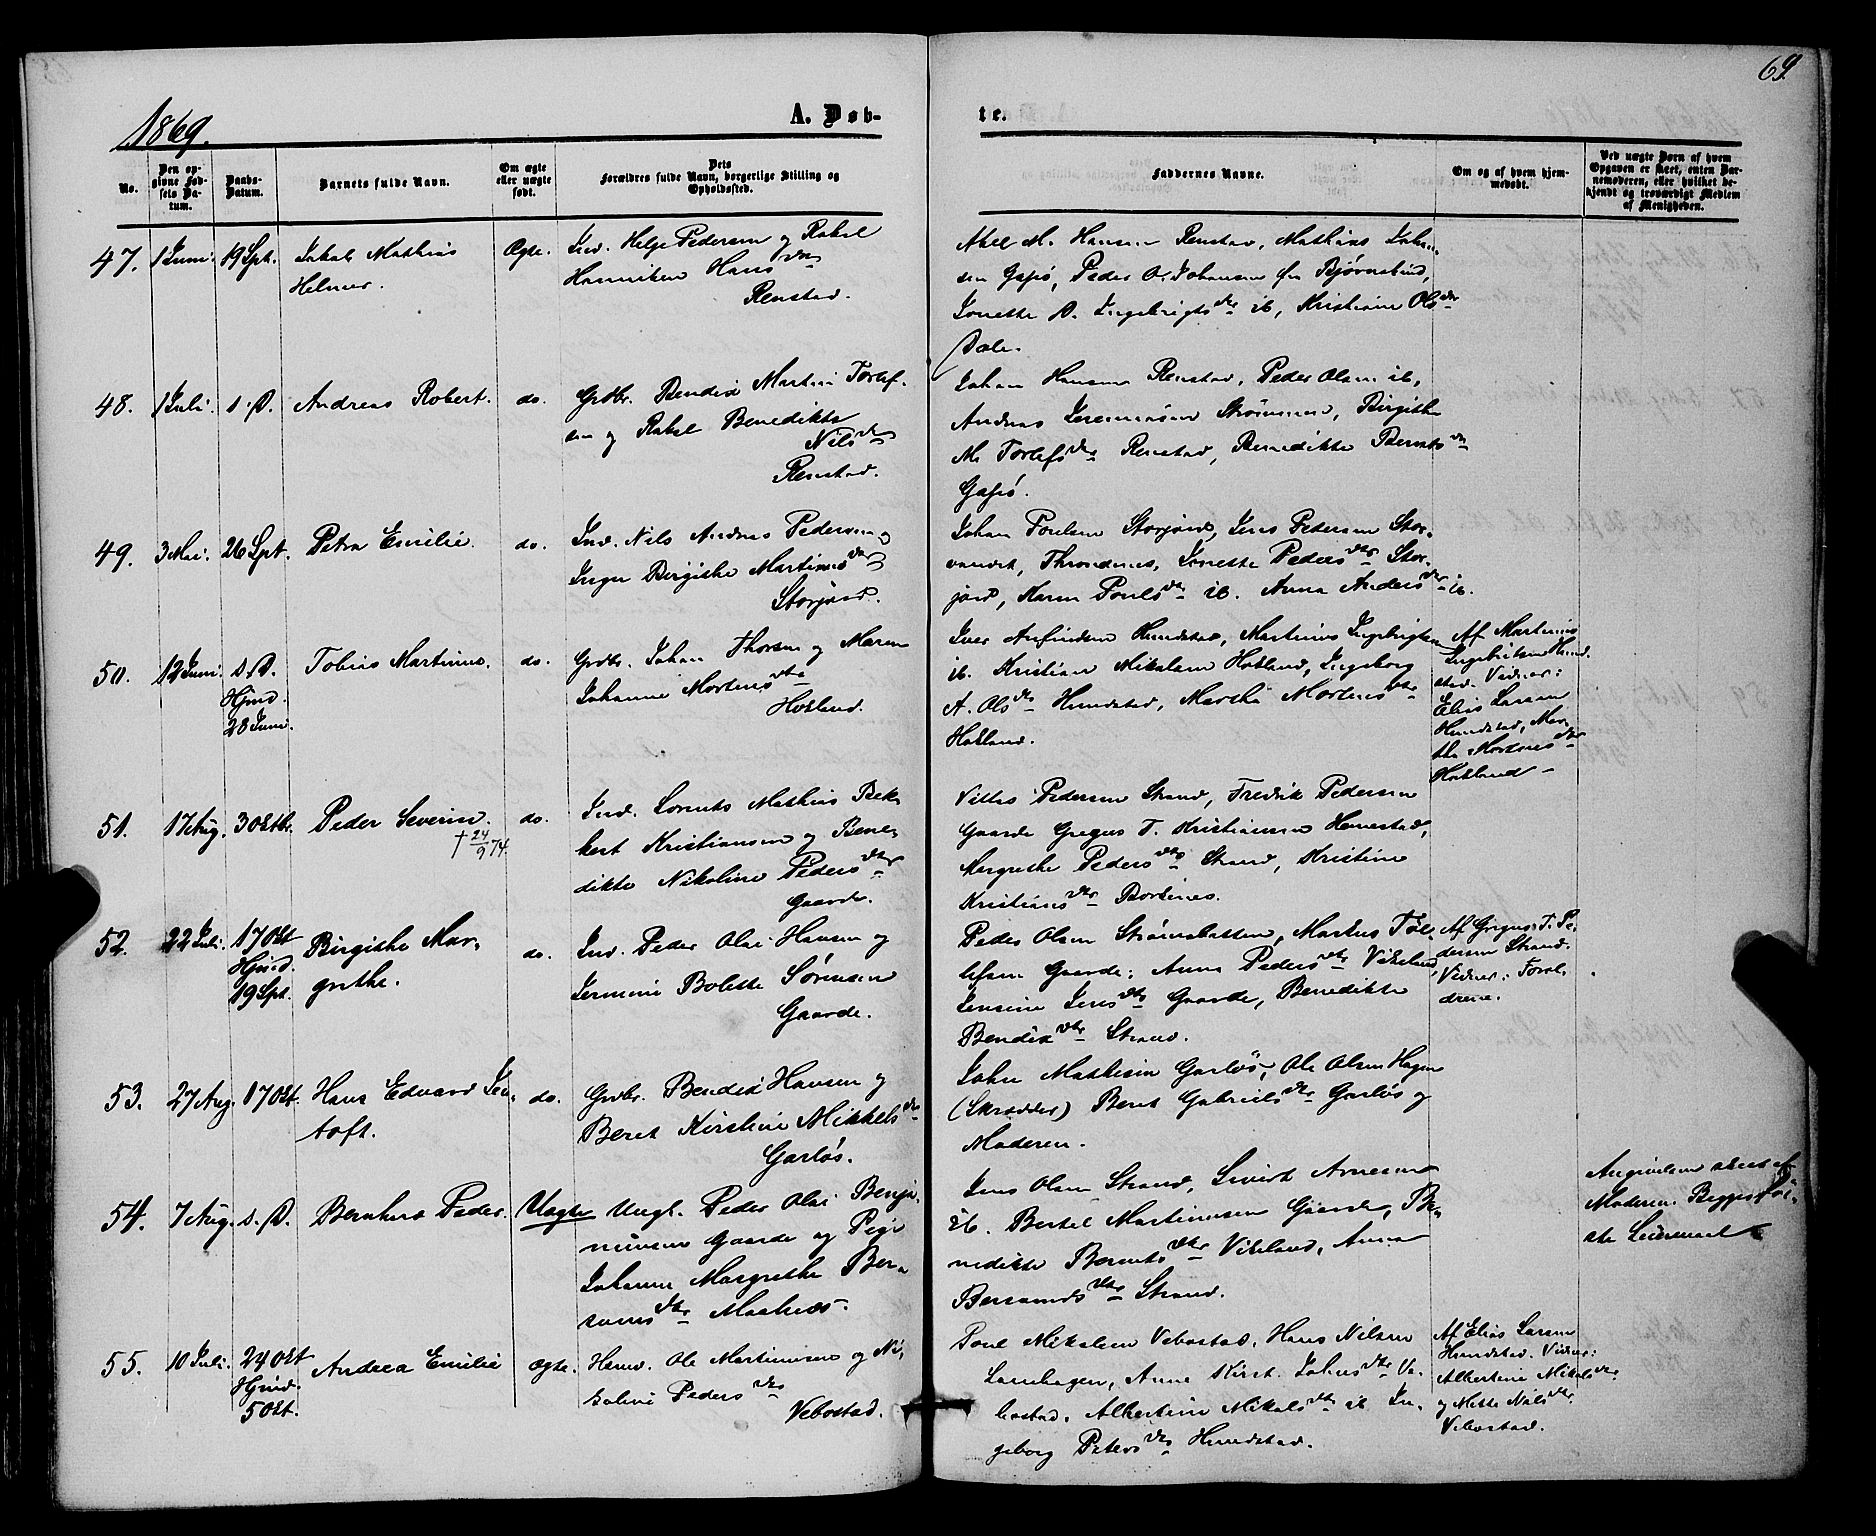 69.
1869.
A. Døb-
te.
No.
Den op-
givne Fød-
sels Da-
tum.
Daabs-
Datum.
Barnets fulde Navn.
Om ægte
eller uægte
født.
Dets
Forældres fulde Navn, borgerlige Stilling og
Opholdssted.
Faddernes Navne.
Om og af hvem hjem-
medøbt.
Ved uægte Børn af hvem
Opgaven er skeet, enten Bar-
nemoderen, eller hvilket be-
kjendt og troværdigt Medlem
af Menigheden.
47.
1 Juni.
19 Spt.
Jakob Mathias
Helmer.
Ægte.
Ind. Helge Pedersen og Rakel
Hanniken Hans dtr
Renstad.
Abel M. Hansen Renstad, Mathias Johan-
sen Gapø, Peder O. Johansen fra Bjørnelund,
Jonette D. Ingebrigts dtr ib, Kristiane Ols dtr
Dale.
48.
1 Juli.
s. D.
Andreas Robert.
do.
Grdbr. Bendix Martin Torlef-
sen og Rakel Benedikte
Nils dtr
Renstad.
Johan Hansen Renstad, Peder Olsen ib,
Andreas Jeremiasen Strømmen, Birgithe
M. Torlefs dtr Renstad, Benedikte Bernts dtr
Gapø.
49.
3 Mai.
26 Spt.
Petra Emilie.
do.
Ind. Nils Andreas Pedersen og
Inger Birgithe Martines dtr
Storjord.
Johan Poulsen Storjord, Jens Pedersen Stor-
vandet, Throndenes, Jonette Peders dtr Stor-
jord, Karen Pouls dtr ib. Anna Anders dtr ib.
50.
12 Juni.
s. D.
Hjmd.
28 Juni.
Tobias Martinus.
do.
Grdbr. Johan Thorsen og Maren
Johanna Mortens dtr
Hokland.
Iver Arfindsen Hundstad, Martinus Ingebrigtsen
ib. Kristian Mikalsen Hokland, Ingeborg
A. Ols dtr Hundstad, Martha Mortens dtr
Hokland.
Af Martinus
Ingebritsen Hund-
stad. Vidner:
Elias Larsen
Hundstad, Mar-
tha Mortens dtr
Hokland
51.
17 Aug.
3 Oktbr.
Peder Severin.
† 24/9 74.
do.
Ind. Lorents Mathias Bek-
kert Kristiansen og Bene-
dikte Nikoline Peders dtr
Gaarde.
Pedersen Strand, Fredrik Pedersen
Gaarde Gregus T. Kristiansen Hemestad,
Margrethe Peders dtr Strand, Kristine
Kristians dtr Bortines.
52.
22 Juli.
17 Okt
Hjmd.
19 Spt.
Birgithe Mar-
grethe.
do.
Ind. Peder Olai Hansen og
Jermine Bolette Sørensen
Gaarde.
Peder Olsen Strømsbotten, Markus Tol-
lefsen Gaarde; Anna Peders dtr Vikeland,
Jensine Jens dtr Gaarde, Benedikte
Bendix dtr Strand.
Af Gregus T. Pe-
dersen Strand.
Vidner: Foræl-
drene.
53.
27 Aug.
17 Okt.
Hans Edvard Jen-
toft.
do.
Grdbr. Bendix Hansen og
Beret Kirstine Mikkels dtr
Garløs.
John Mathisen Garløs, Ole Olsen Hagen
(Skrædder) Beret Gabriels dtr Garløs og
Moderen.
54.
7 Aug.
s. D.
Bernhard Peder.
Uægte
Ungk. Peder Olai Benja-
minsen Gaarde og Pige
Johanna Margrethe Ber-
sons dtr Maalnes.
Jens Olsen Strand, Sivert Arnesen
ib. Bertel Martinusen Gaarde, Be-
nedikte Bernts dtr Vikeland, Anna
Bersvends dtr Strand.
Angivelsen skeet af
Moderen. Begges før-
ste Leiermaal
55.
10 Juli.
24 Okt
Hjmd.
5 Okt.
Andrea Emilie
Ægte.
Hmd. Ole Martinusen og Ni-
koline Peders dtr
Vebostad.
Poul Mikalsen Vebostad, Hans Nilsen
Lanehagen, Anne Kirst. Johns dtr Ve-
bostad. Albertine Mikals dtr ib In-
geborg Peters dtr Hundstad.
Af Elias Larsen
Hundstad. Vidner:
Albertine Mikals dtr
og Mette Nils dtr
Vebostad.